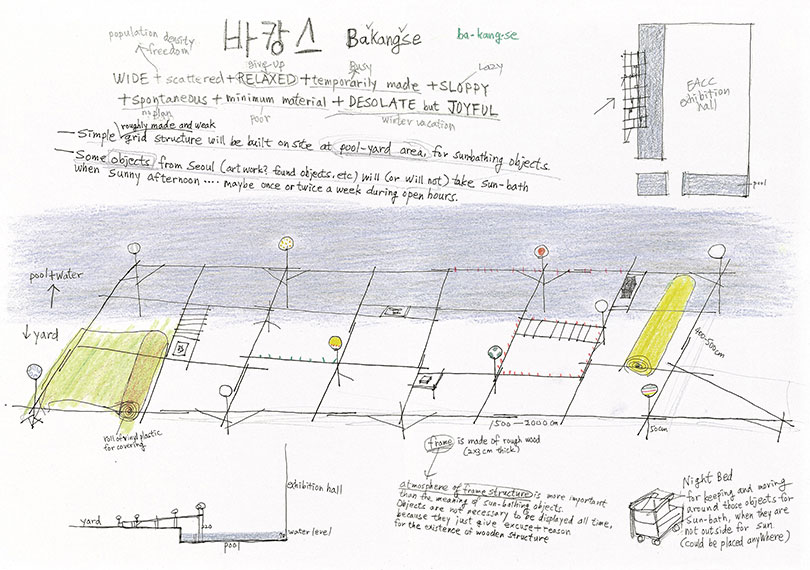 바캉스 Bǎkangšе ba-kang-se
population density
freedom
give-up
busy
Lazy
WIDE + scattered + RELAXED + temporarily made + SLOPPY
+ spontaneous + minimum material + DESOLATE but JOYFUL
no plan
poor
winter vacation
roughly made and weak
— Simple grid structure will be built on site at pool-yard area, for sunbathing objects.
— Some objects from Seoul (art work? found objects. etc) will (or will not) take sun-bath
when sunny afternoon .... maybe once or twice a week during open hours.
EACC
exhibition
hall
pool
pool + water
↓ yard
400-500cm
1500 — 2000 cm
50cm
roll of vinyl plastic
for covering
frame is made of rough wood
(2x3 cm thick)
atmosphere of frame structure is more important
than the meaning of sun-bathing objects.
Objects are not necessary to be displayed all time,
because they just give excuse + reason
for the existence of wooden structure
exhibition hall
yard
water level
pool
Night Bed
for keeping and moving
around those objects for
Sun-bath, when they are
not outside for sun
(could be placed anywhere)